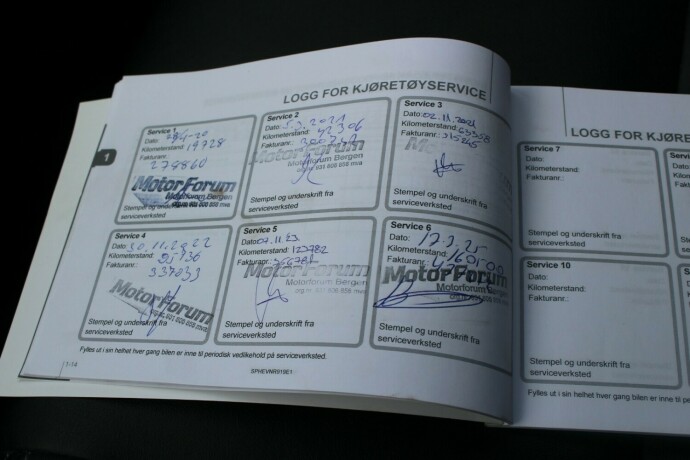 LOGG FOR KJØRETØYSERVICE
Service 1
Dato:
Kilometerstand: 19728
Fakturanr.:
279860
MotorForum
Motorforum Bergen
Stempel og underskrift fra
serviceverksted
Service 2
Dato: 5.3.2021
Kilometerstand: 42306
Fakturanr.:
Motorforum Bergen
Stempel og underskrift fra
serviceverksted
Service 3
Dato: 02.11.2021
Kilometerstand: 63358
Fakturanr.:
Stempel og underskrift fra
serviceverksted
Service 4
Dato: 30.11.2022
Kilometerstand:
Fakturanr.:
337033
MotorForum
Stempel og underskrift fra
serviceverksted
Service 5
Dato: 07.11.23
Kilometerstand: 122782
Fakturanr.:
MotorForum
Motorforum Bergen
Stempel og underskrift fra
serviceverksted
Service 6
Dato: 17.3.25
Kilometerstand:
Fakturanr.:
MotorForum
Motorforum Bergen
Stempel og underskrift fra
serviceverksted
Fylles ut i sin helhet hver gang bilen er inne til periodisk vedlikehold på serviceverksted.
1-14
SPHEVNR919E1
1
LOGG FOR KJØRE
Service 7
Dato:
Kilometerstand:
Fakturanr.:
Stempel og underskrift fra
serviceverksted
Service 10
Dato:
Kilometerstand:
Fakturanr.:
Stempel og underskrift fra
serviceverksted
Fylles ut i sin helhet hver gang bilen er inne til pe